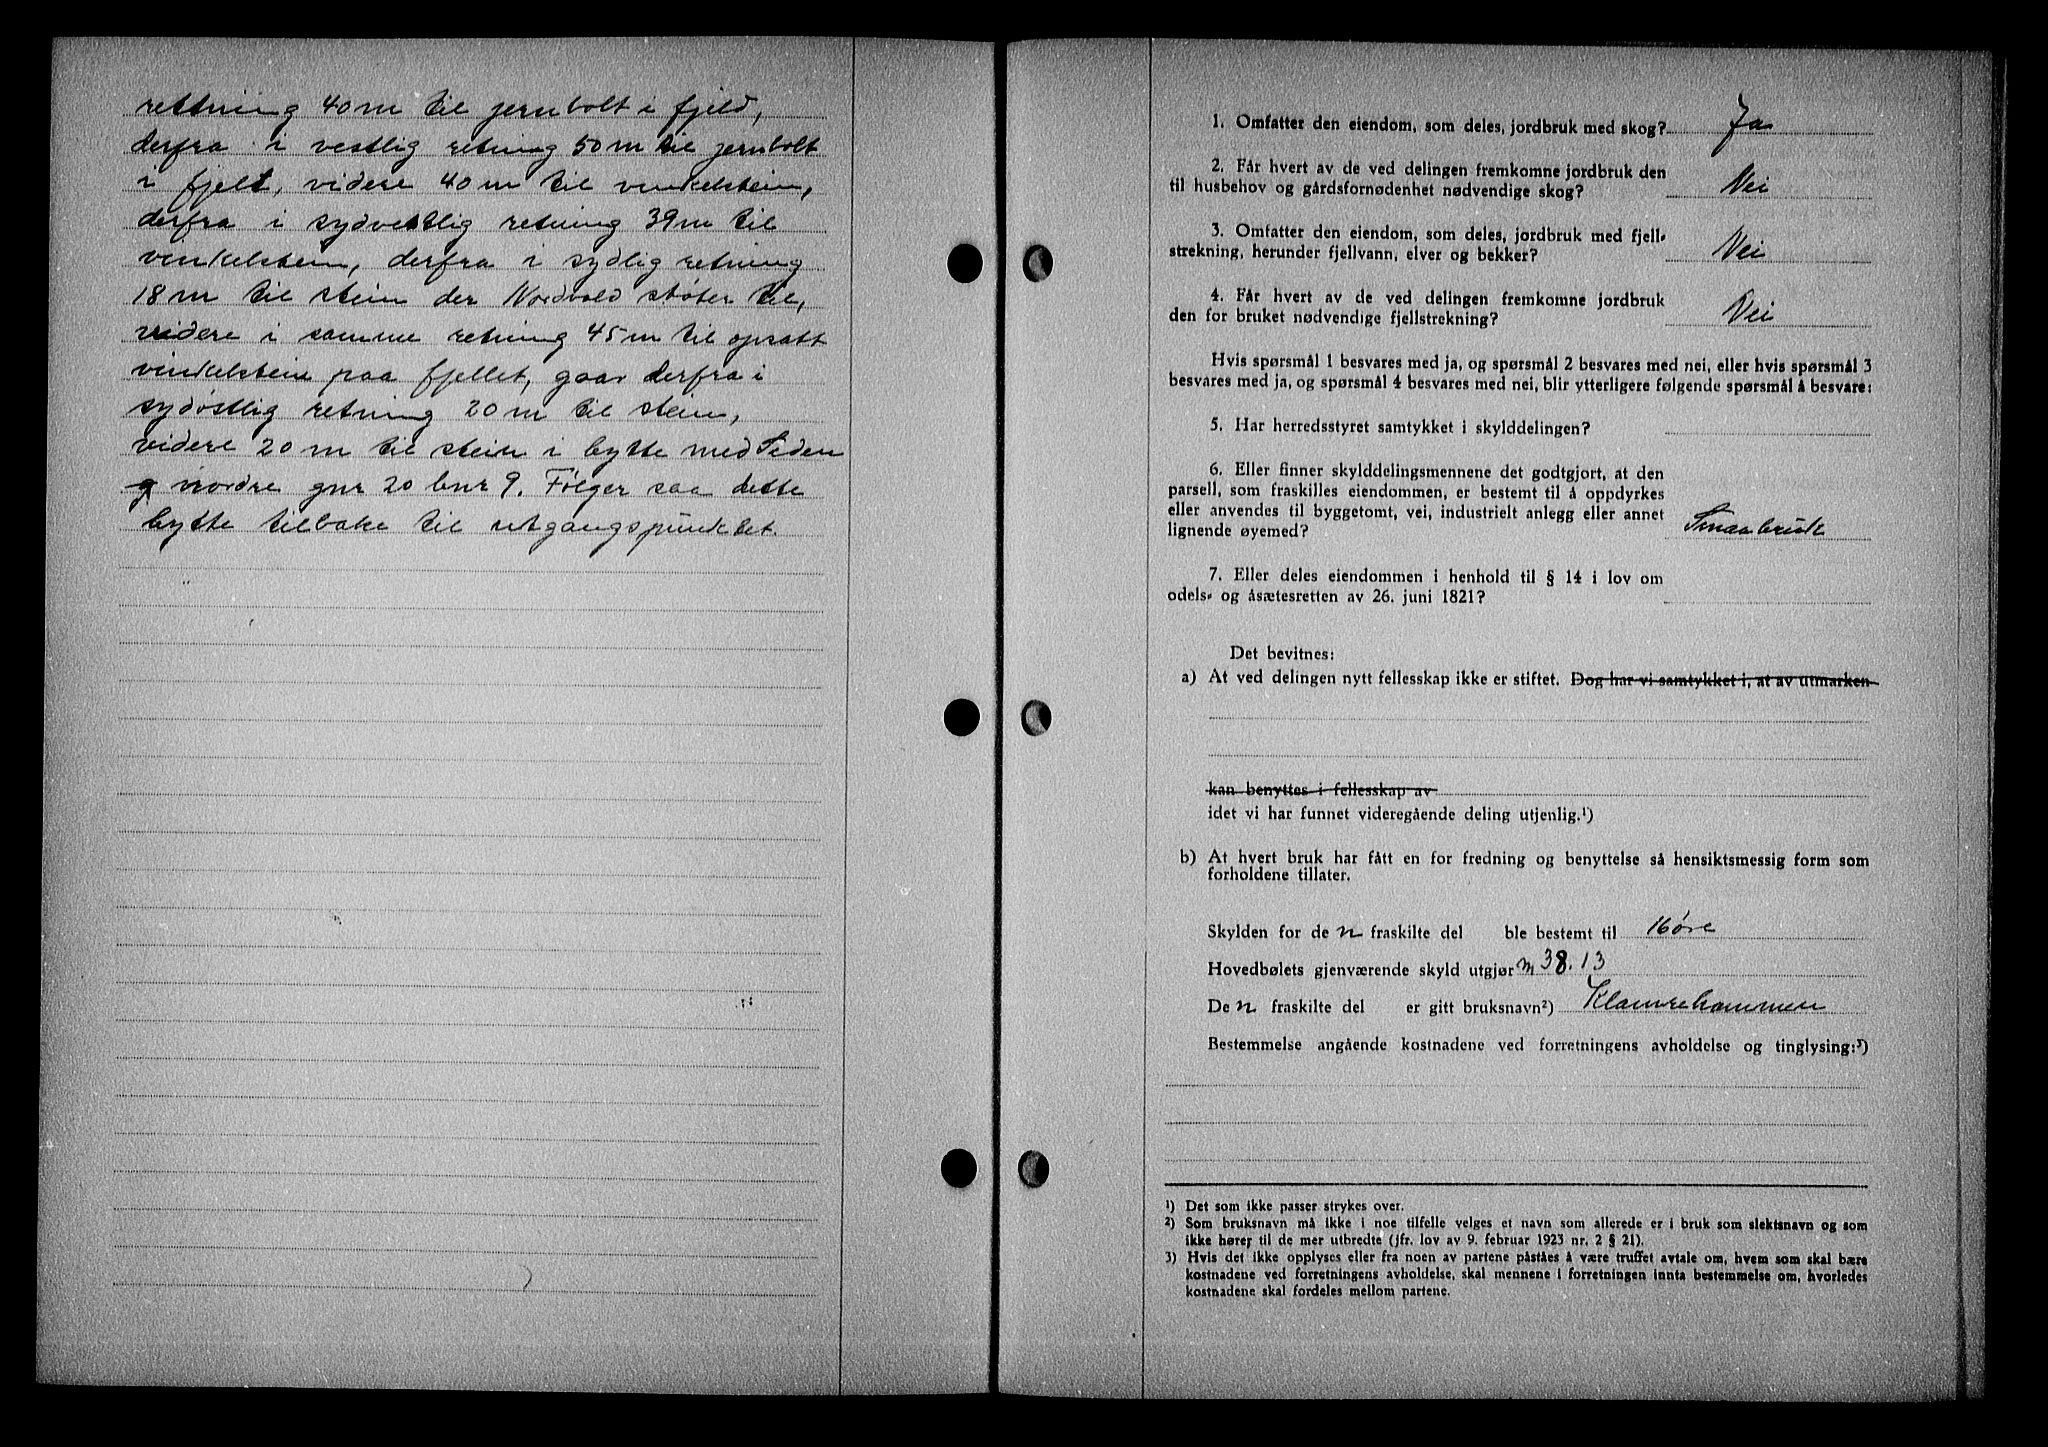 rettning 40 m til jernbolt i fjeld,
derfra i vestlig retning 50 m til jernbolt
i fjelt, videre 40 m til vinkelstein,
derfra i sydvestlig retning 39 m til
vinkelstein, derfra i sydlig retning
18 m til stein der Nordvold støter til,
videre i samme retning 45 m til opsatt
vinkelstein paa fjellet, gaar derfra i
sydøstlig retning 20 m til stein,
videre 20 m til stein i bytte med
nordre gnr 20 bnr 9. Følger saa dette
bytte tilbake til utgangspunktet.
1. Omfatter den eiendom, som deles, jordbruk med skog? Ja
2. Får hvert av de ved delingen fremkomne jordbruk den
til husbehov og gårdsfornødenhet nødvendige skog? Nei
3. Omfatter den eiendom, som deles, jordbruk med fjell-
strekning, herunder fjellvann, elver og bekker? Nei
4. Får hvert av de ved delingen fremkomne jordbruk
den for bruket nødvendige fjellstrekning? Nei
Hvis spørsmål 1 besvares med ja, og spørsmål 2 besvares med nei, eller hvis spørsmål 3
besvares med ja, og spørsmål 4 besvares med nei, blir ytterligere følgende spørsmål å besvare:
5. Har herredsstyret samtykket i skylddelingen?
6. Eller finner skylddelingsmennene det godtgjort, at den
parsell, som fraskilles eiendommen, er bestemt til å oppdyrkes
eller anvendes til byggetomt, vei, industrielt anlegg eller annet
lignende øyemed? Smaabruk
7. Eller deles eiendommen i henhold til § 14 i lov om
odels- og åsætesretten av 26. juni 1821?
Det bevitnes:
a) At ved delingen nytt fellesskap ikke er stiftet. Dog har vi samtykket i, at av utmarken
kan benyttes i fellesskap av
idet vi har funnet videregående deling utjenlig.¹)
b) At hvert bruk har fått en for fredning og benyttelse så hensiktsmessig form som
forholdene tillater.
Skylden for de n fraskilte del ble bestemt til 16 øre
Hovedbølets gjenværende skyld utgjør m 38.13
De n fraskilte del er gitt bruksnavn²) Klamrehammen
Bestemmelse angående kostnadene ved forretningens avholdelse og tinglysing:³)
¹) Det som ikke passer strykes over.
²) Som bruksnavn må ikke i noe tilfelle velges et navn som allerede er i bruk som slektsnavn og som
ikke hører til de mer utbredte (jfr. lov av 9. februar 1923 nr. 2 § 21).
3) Hvis det ikke opplyses eller fra noen av partene påståes å være truffet avtale om, hvem som skal bære
kostnadene ved forretningens avholdelse, skal mennene i forretningen innta bestemmelse om, hvorledes
kostnadene skal fordeles mellom partene.